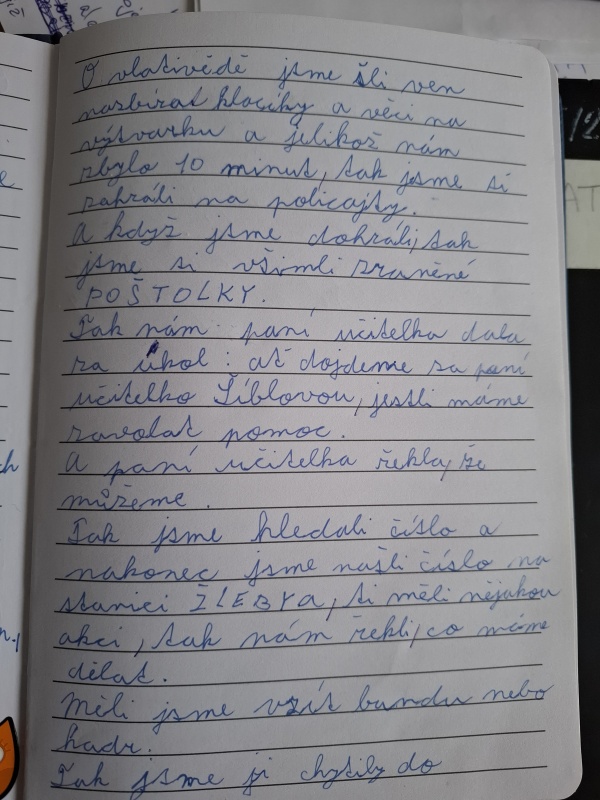 O vlativědě jsme šli ven
nazbírat klacíky a věci na
výtvarku a jelikož nám
zbylo 10 minut, tak jsme si
zahráli na policajty.
A když jsme dohráli, tak
jsme si všimli zraněné
POŠTOLKY.
Tak nám paní učitelka dala
za úkol: ať dojdeme za paní
učitelko Šíblovou, jestli máme
zavolat pomoc.
A paní učitelka řekla, že
můžeme.
Tak jsme hledali číslo a
nakonec jsme našli číslo na
stanici ŽLEBYA, ti měli nějakou
akci, tak nám řekli, co máme
dělat.
Měli jsme vzít bundu nebo
hadr.
Tak jsme ji chytily do